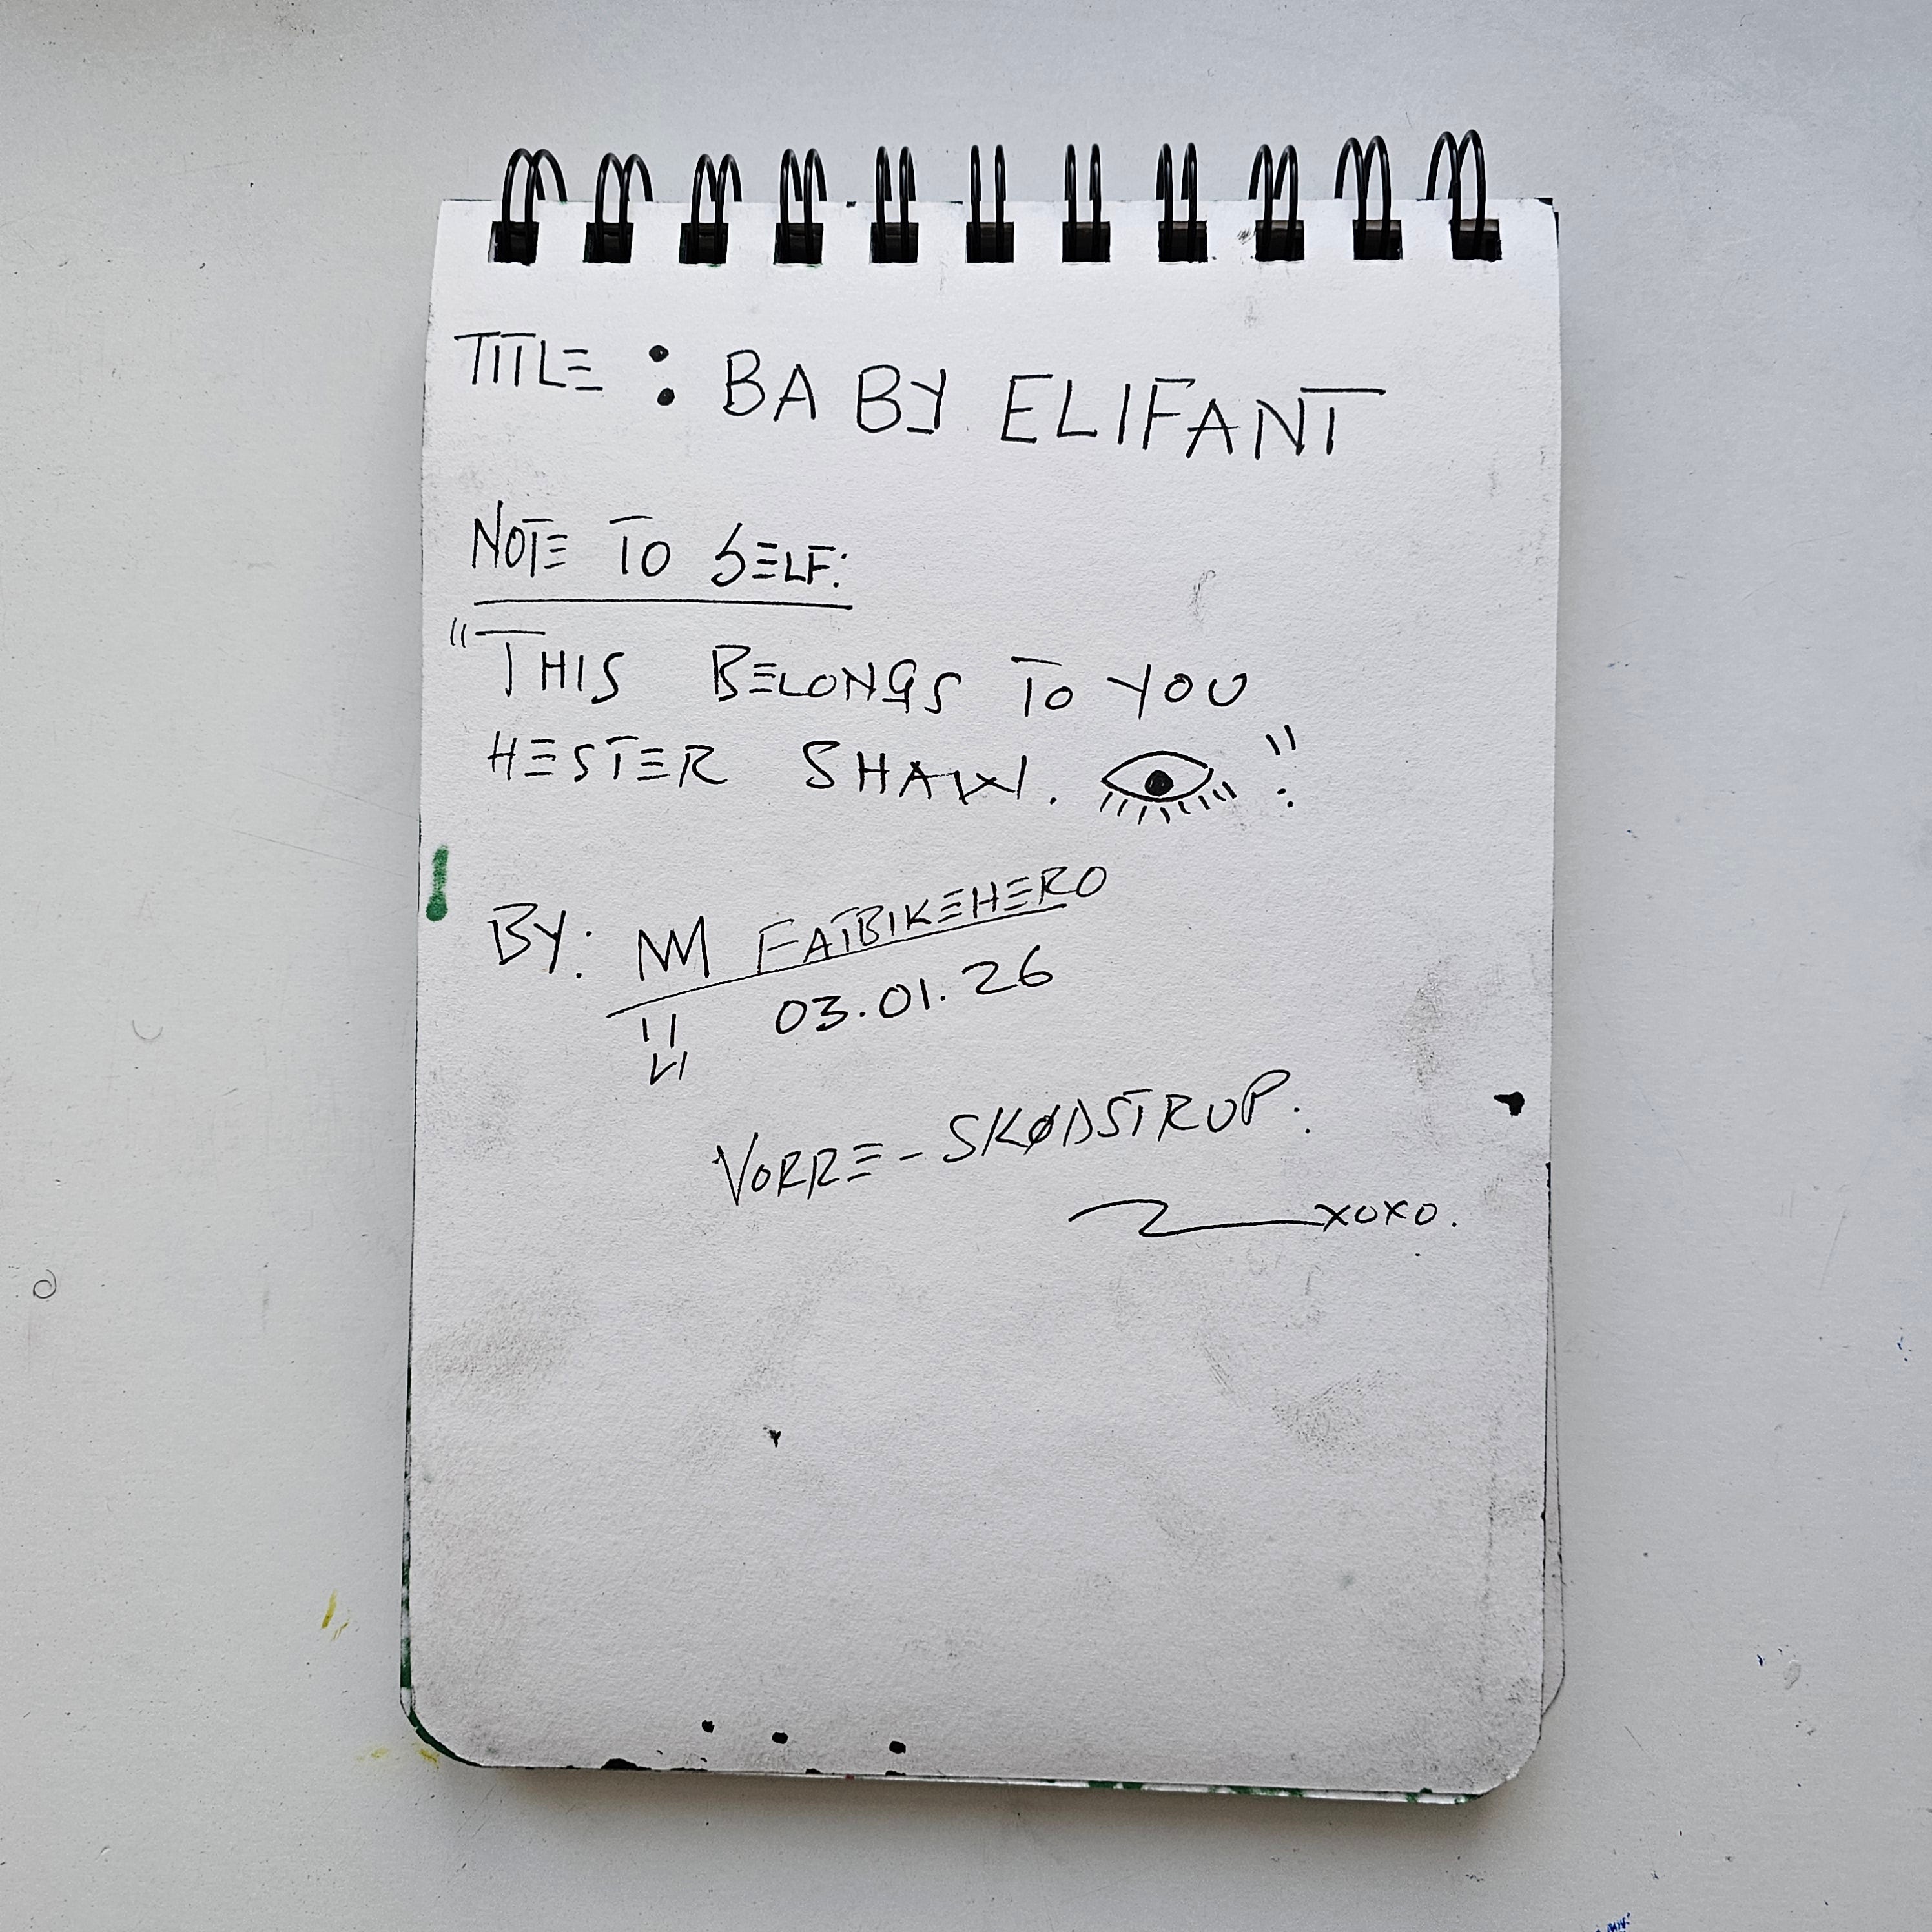 TITLE : BABY ELIFANT
NOTE TO SELF:
"THIS BELONGS TO YOU
HESTER SHAW. "
BY: FATBIKEHERO
03.01.26
VORRE-SKØDSTRUP.
XOXO.